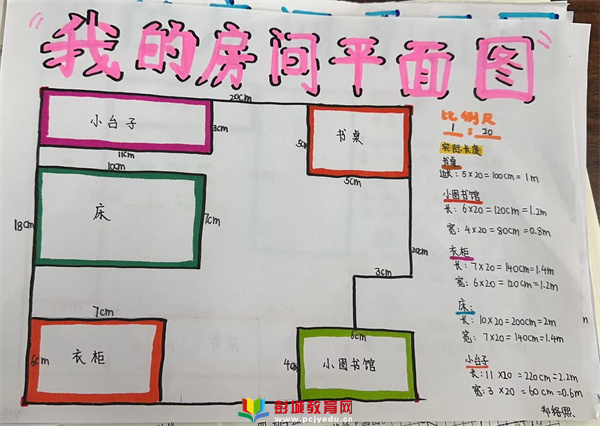 “我的房间平面图”
20cm
小台子
3cm
11cm
书桌
5cm
5cm
10cm
床
7cm
18cm
20cm
3cm
7cm
衣柜
6cm
6cm
小图书馆
4cm
比例尺
1:20
实际长度
书桌
边长:5×20=100cm=1m
小图书馆
长:6×20=120cm=1.2m
宽:4×20=80cm=0.8m
衣柜
长:7×20=140cm=1.4m
宽:6×20=120cm=1.2m
床:
长:10×20=200cm=2m
宽:7×20=140cm=1.4m
小台子
长:11×20=220cm=2.2m
宽:3×20=60cm=0.6m
彭城教育网
www.pcjyedu.cn